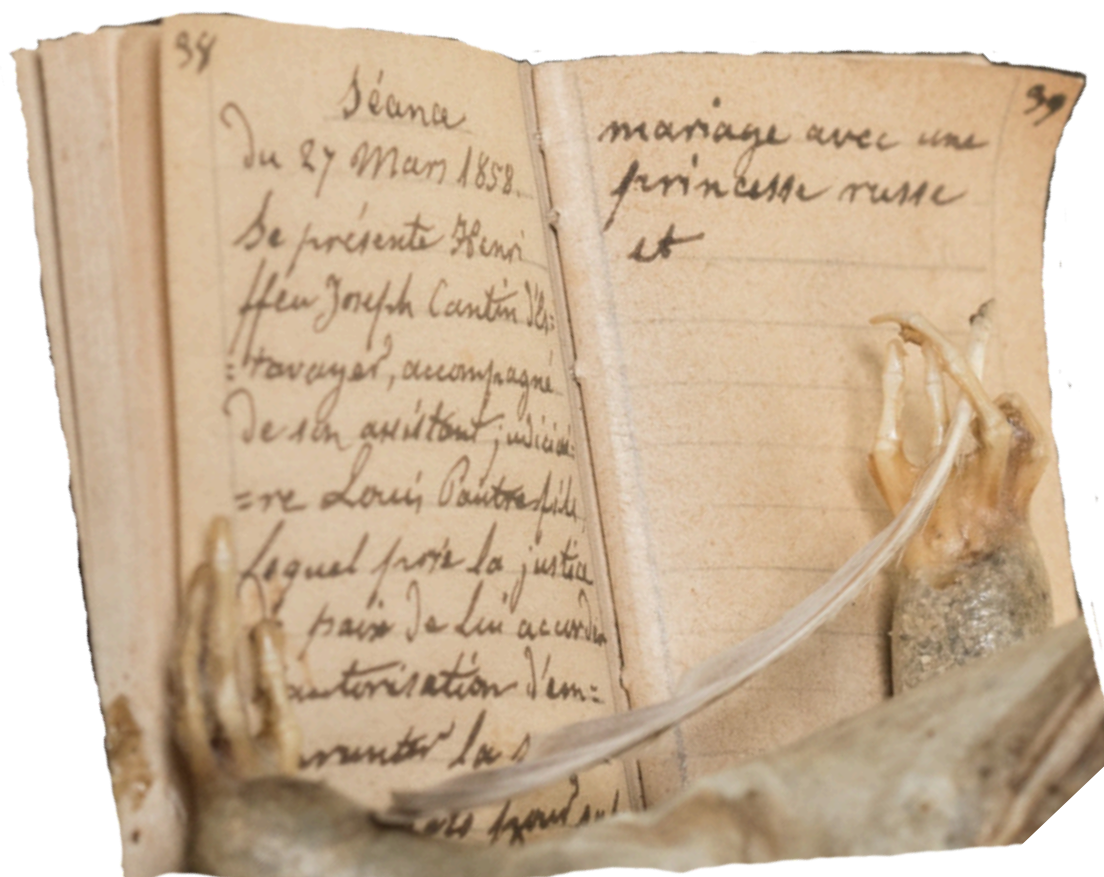 38
Séance
du 27 Mars 1858.
Se présente Henri
ffeu Joseph Cantin d'Es=
=tavayer, accompagné
de son assistant judiciai=
=re Louis Pautre fils,
lequel prie la justice
paix de lui accorder
autorisation d'em=
la
pour
39
mariage avec une
princesse russe
et